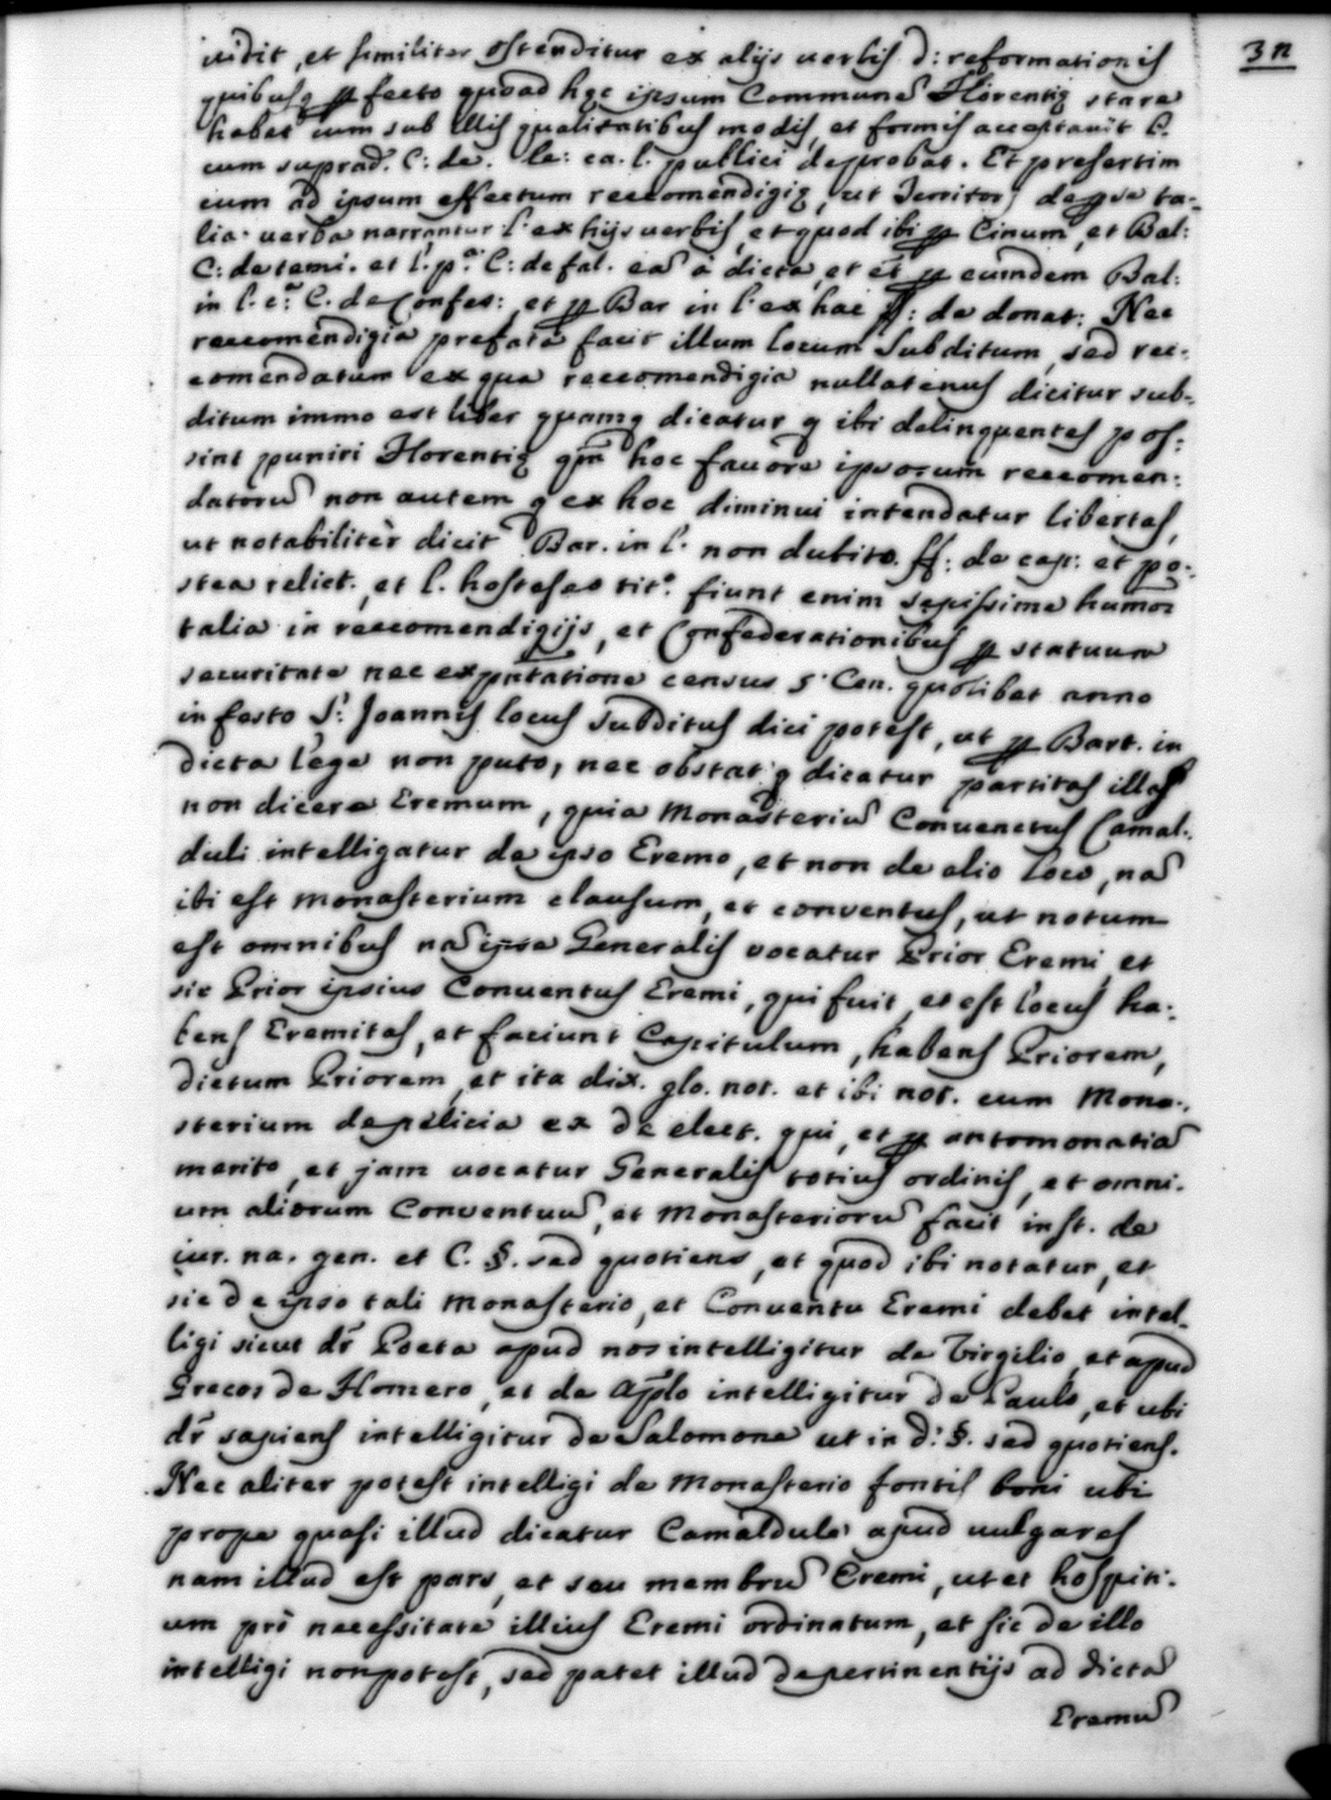 32
uidit, et similiter ostenditur ex alijs uerbis d: reformationis
quibusq per fecto quoad hęc ipsum Commune Florentię stare
habet cum sub illis qualitatibus modis, et formis acceptauit l.
cum suprad. C: de. le: ca. l. publici deprobat. Et presertim
cum ad ipsum effectum reccomendigię, ut Territorj de se ta-
lia uerba narrantur l. ex hijs uerbis, et quod ibi per Cinum, et Bal:
C: de temi. et l. p.ª C: de fal. ea à dicta, et et per eumdem Bal:
in l. e.ª C. de Confes: et per Bar in l. ex hac ff: de donat: Nec
reccomendigia prefata facit illum locum Subditum, sed rec-
comendatum ex qua reccomendigia nullatenus dicitur sub-
ditum immo est liber quamq dicatur q ibi delinquentes pos:
sint puniri Florentię qm hoc fauore ipsorum reccomen:
datoru non autem q ex hoc diminui intendatur libertas,
ut notabilitèr dicit Bar. in l. non dubito. ff: de cap: et po:
stea relict., et l. hostes eo tit.º fiunt enim sępissime humoz
talia in reccomendigijs, et Confederationibus per statuum
securitate nec exputatione census 5. Cen. quolibet anno
in festo S: Joannis locus subditus dici potest, ut per Bart. in
dicta lege non puto, nec obstat q dicatur partitas illas
non dicere Eremum, quia Monasteriu Conuenctus Camal:
duli intelligatur de ipso Eremo, et non de alio loco, na
ibi est monasterium clausum, et conventus, ut notum
est omnibus na ipse Generalis vocatur Prior Eremi, et
sic Prior ipsius Conuentus Eremi, qui fuit, et est locus ha:
bens Eremitas, et faciunt Capitulum, habens Priorem,
dictum Priorem, et ita dix. glo. not. et ibi not. cum Mona-
sterium de pelicia ex de elect. qui, et per antomonatia
merito, et jam uocatur Generalis totius ordinis, et omni-
um aliorum Conventuu, et Monasterioru facit inst. de
iur. na. gen. et C. §. sed quotiens, et quod ibi notatur, et
sic de ipso tali Monasterio, et Conuentu Eremi debet intel-
ligi sicut dr Poeta apud nos intelligitur de Virgilio, et apud
Grecos de Homero, et de Aplo intelligitur de Paulo, et ubi
dr sapiens intelligitur de Salomone ut in d: §. sed quotiens.
Nec aliter potest intelligi de Monasterio fontis boni ubi
prope quasi illud dicatur Camaldula apud uulgares
nam illud est pars, et seu membru Eremi, ut et hospiti-
um prò necessitate illius Eremi ordinatum, et sic de illo
intelligi non potest, sed patet illud de pertinentijs ad dicta
Eremu